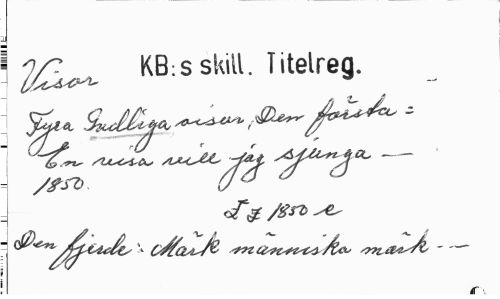 KB:s skill. Titelreg.
Visor
Fyra Gudliga visor, Den första =
En visa vill jag sjunga —
1850.
T z 1850 e
Den fjerde: Märk människa märk - —